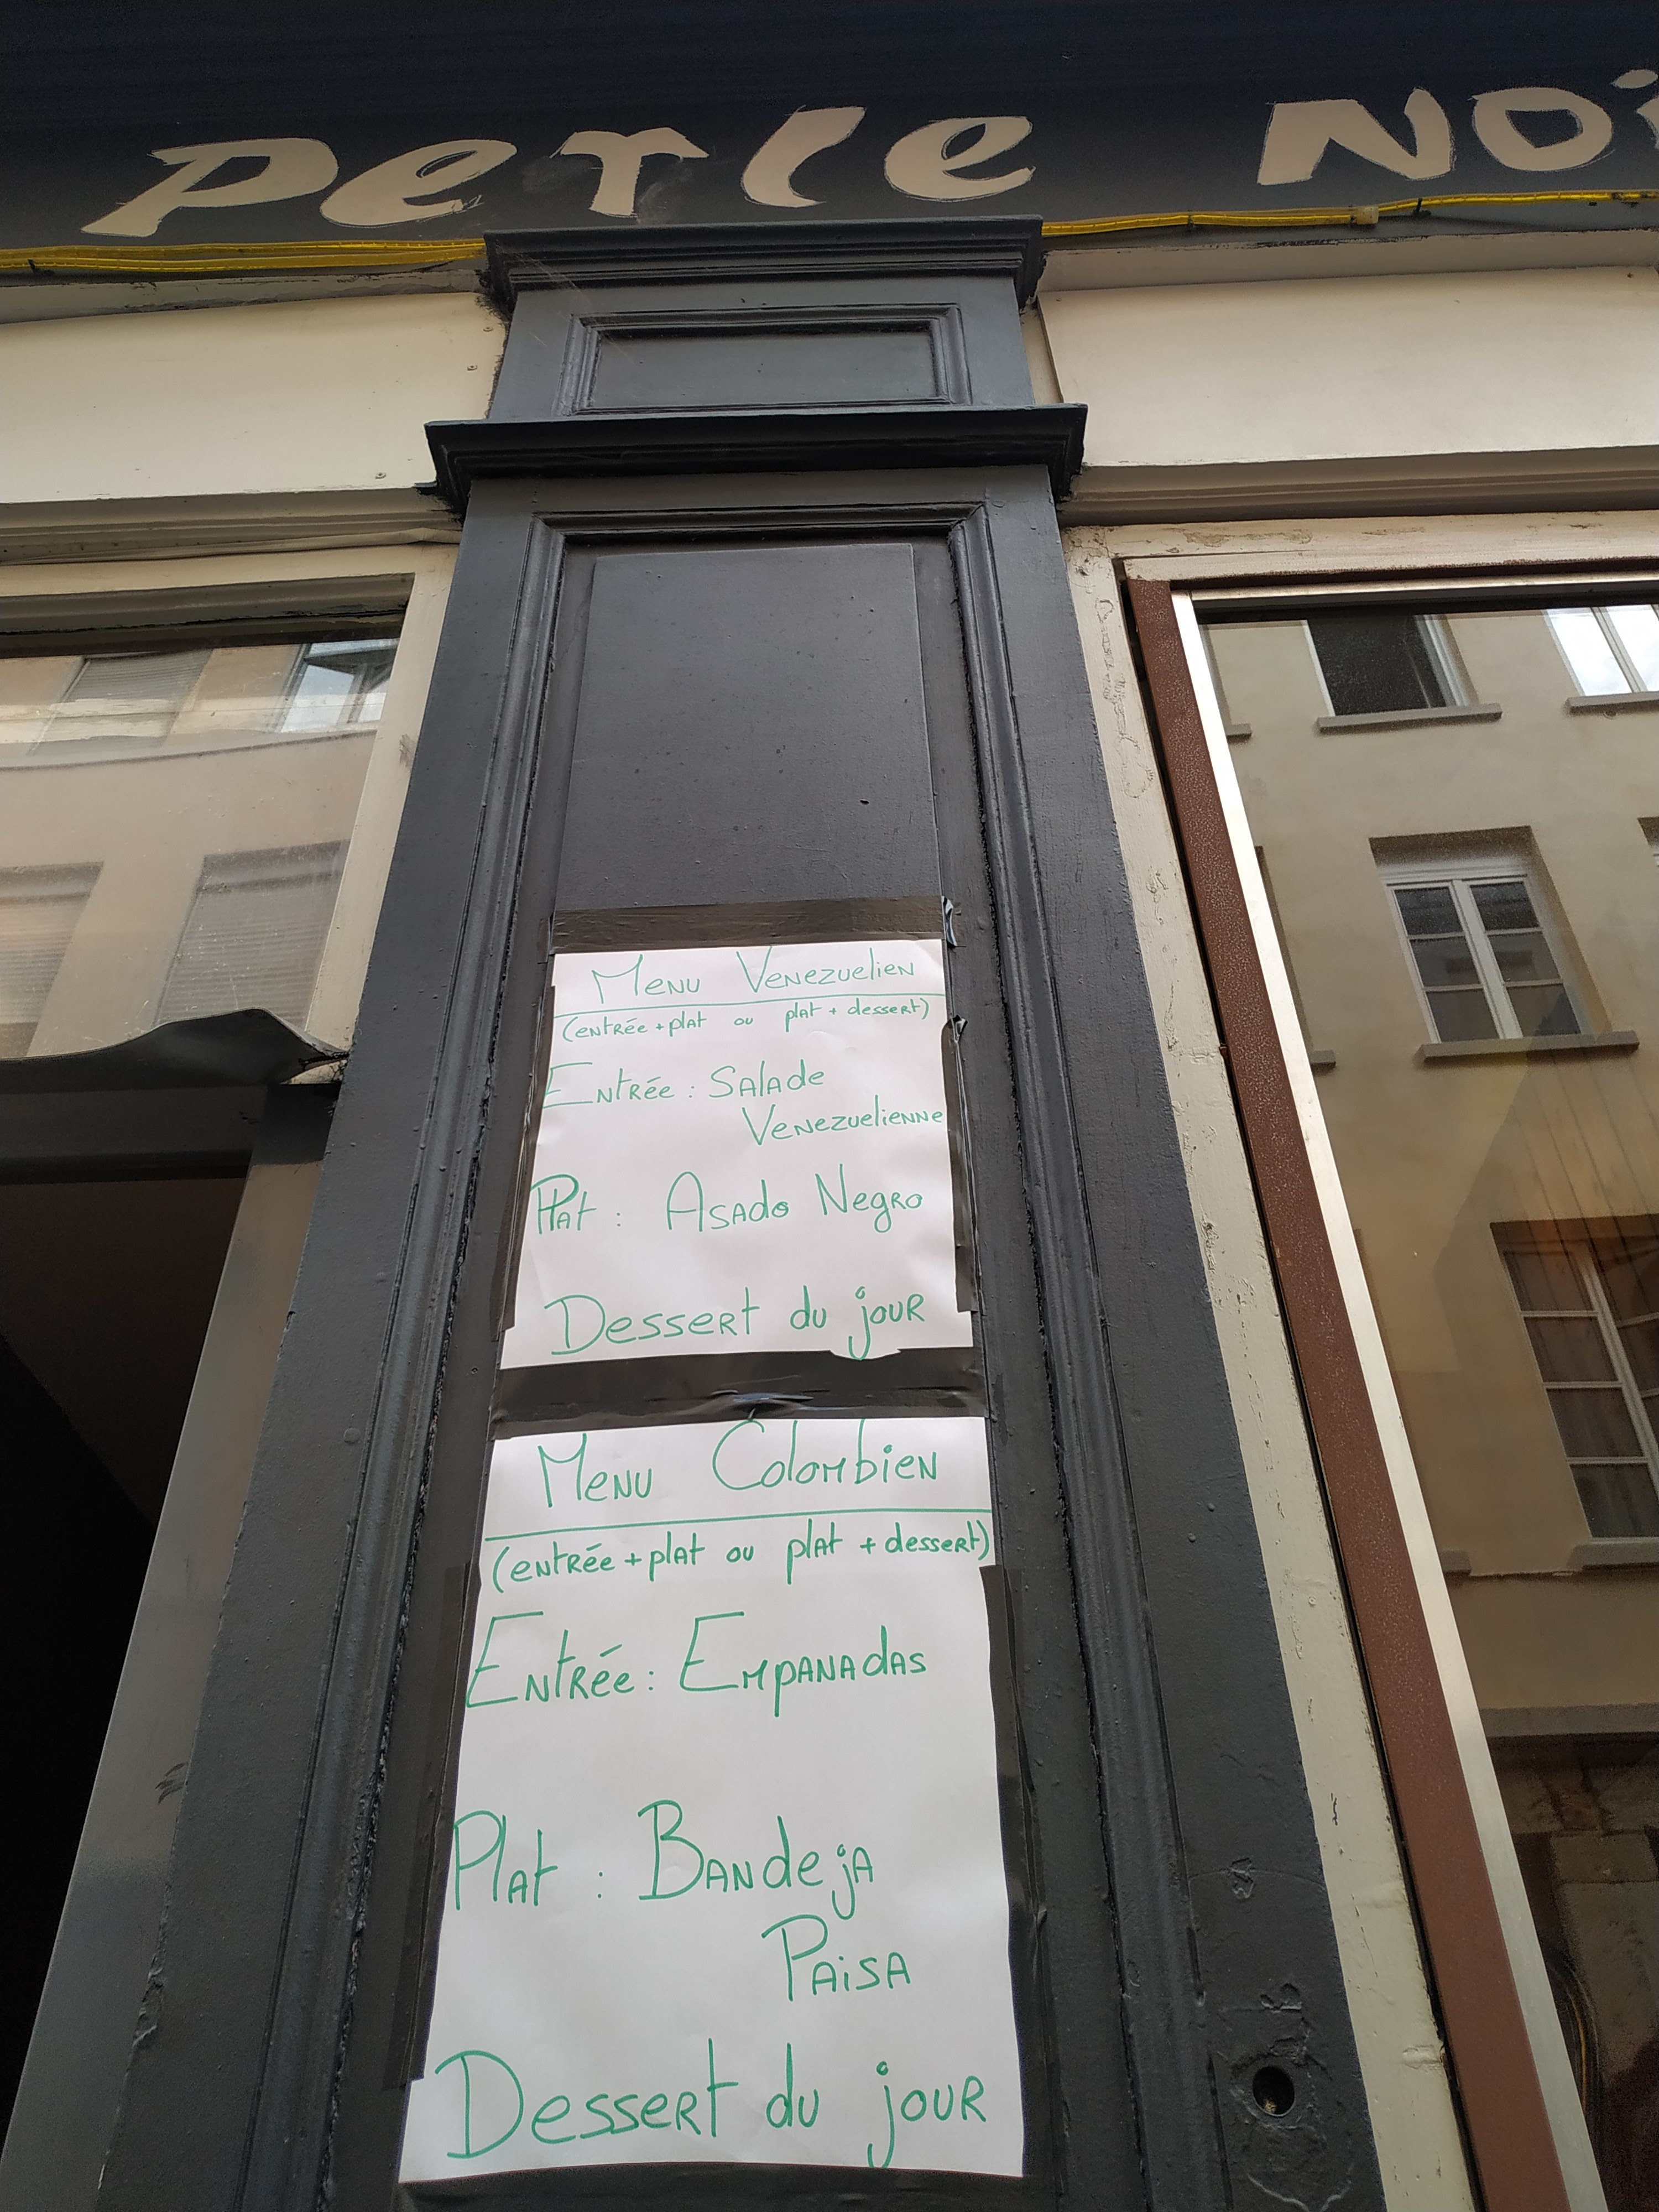 Perle Noi
Menu Venezuelien
(entrée + plat ou plat + dessert)
Entrée : Salade
Venezuelienne
Plat : Asado Negro
Dessert du jour
Menu Colombien
(entrée + plat ou plat + dessert)
Entrée : Empanadas
Plat : Bandeja
Paisa
Dessert du jour